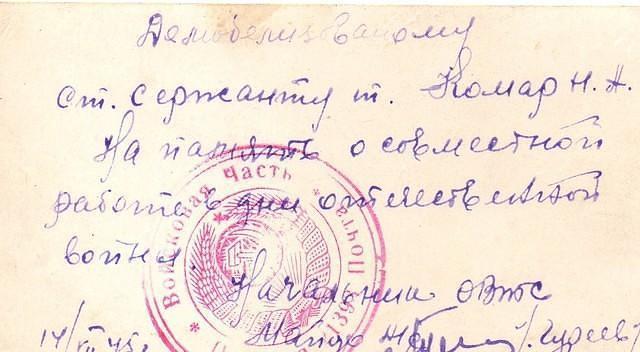 Демобелизованому
ст. сержанту т. Комар Н. А.
На память о совместной
работе в дни отечественной
войны.
Начальник ОВТС
Майор
Войсковая часть
Почта